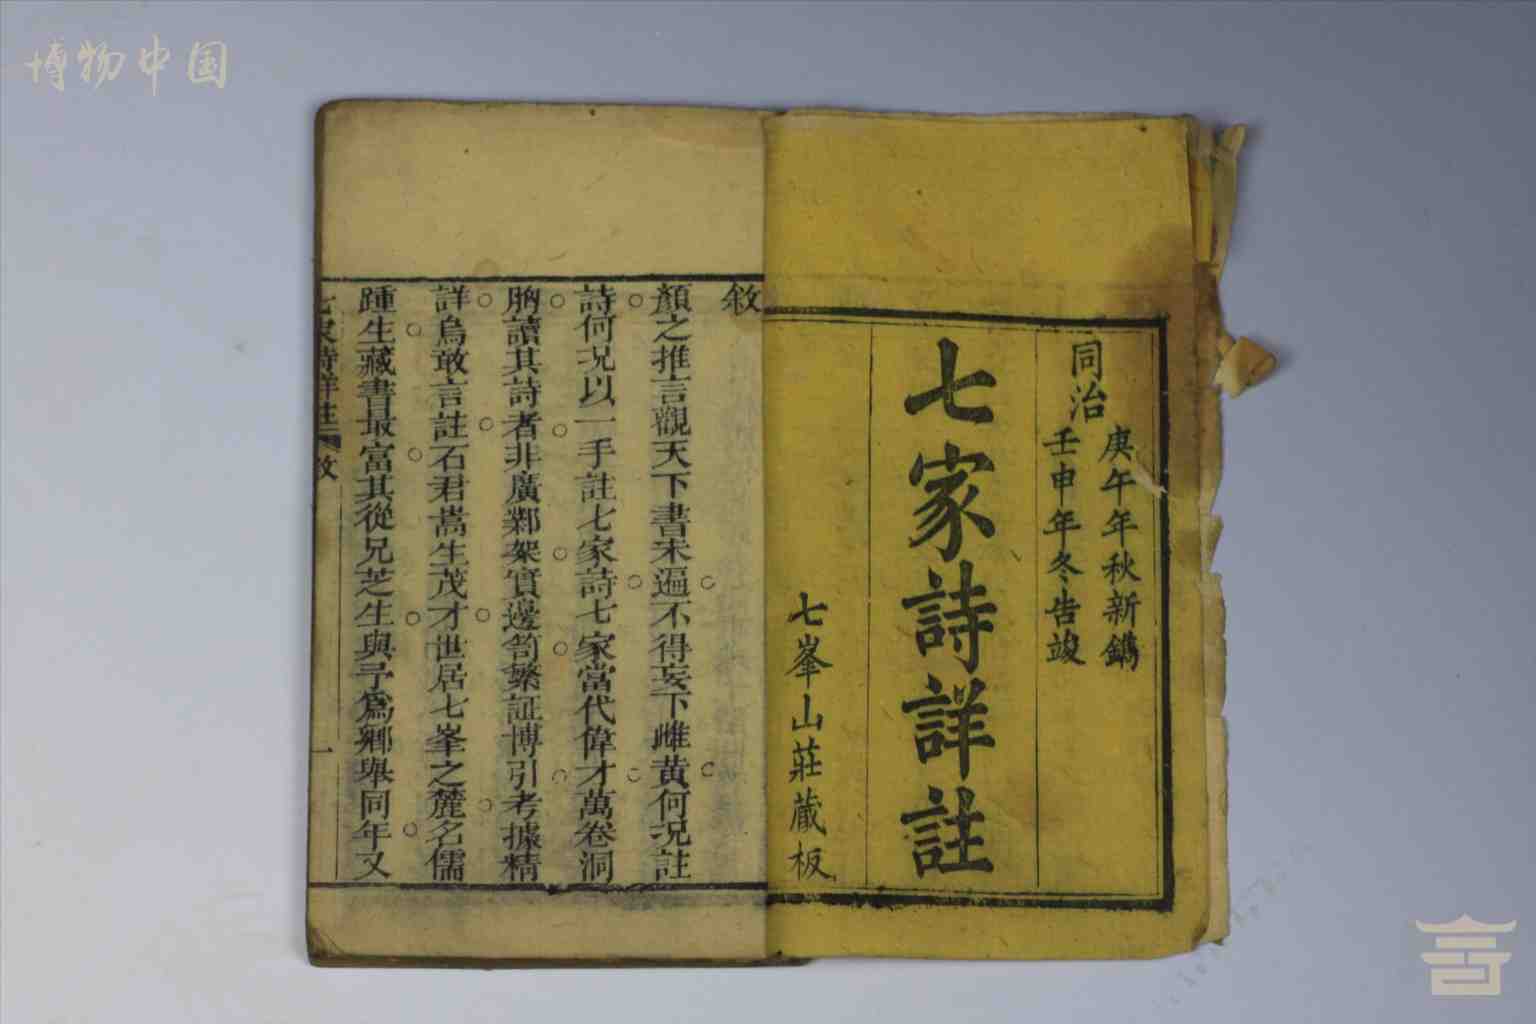 博物中国
同治
庚午年秋新鐫
壬申年冬告竣
七家詩詳註
七峯山莊藏板
敘
顏之推言觀天下書未遍不得妄下雌黄何況註
詩何況以一手註七家詩七家當代偉才萬卷洞
胸讀其詩者非廣鄴架實邊笥繁証博引考據精
詳烏敢言註石君嵩生茂才世居七峯之麓名儒
踵生藏書最富其從兄芝生與予爲鄉舉同年又
七家詩詳註 敘 一